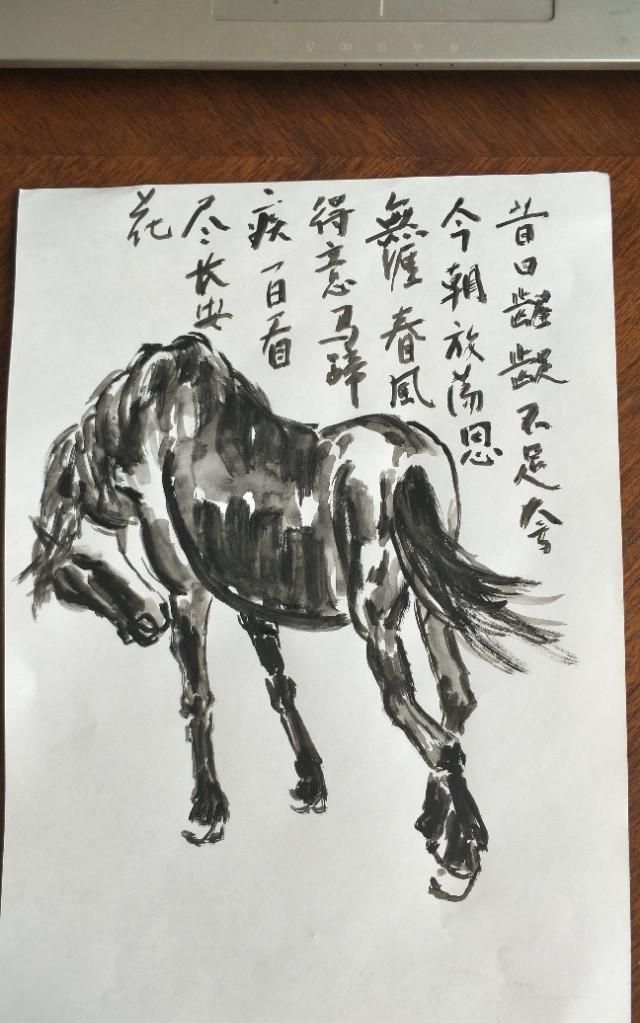 昔日齷齪不足夸
今朝放荡思
無涯春風
得意马蹄
疾一日看
尽长安
花